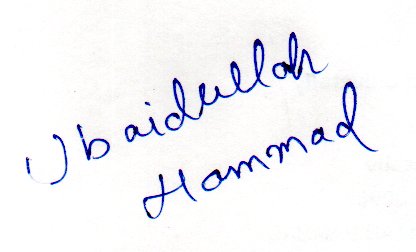 Ubaidullah
Hammad